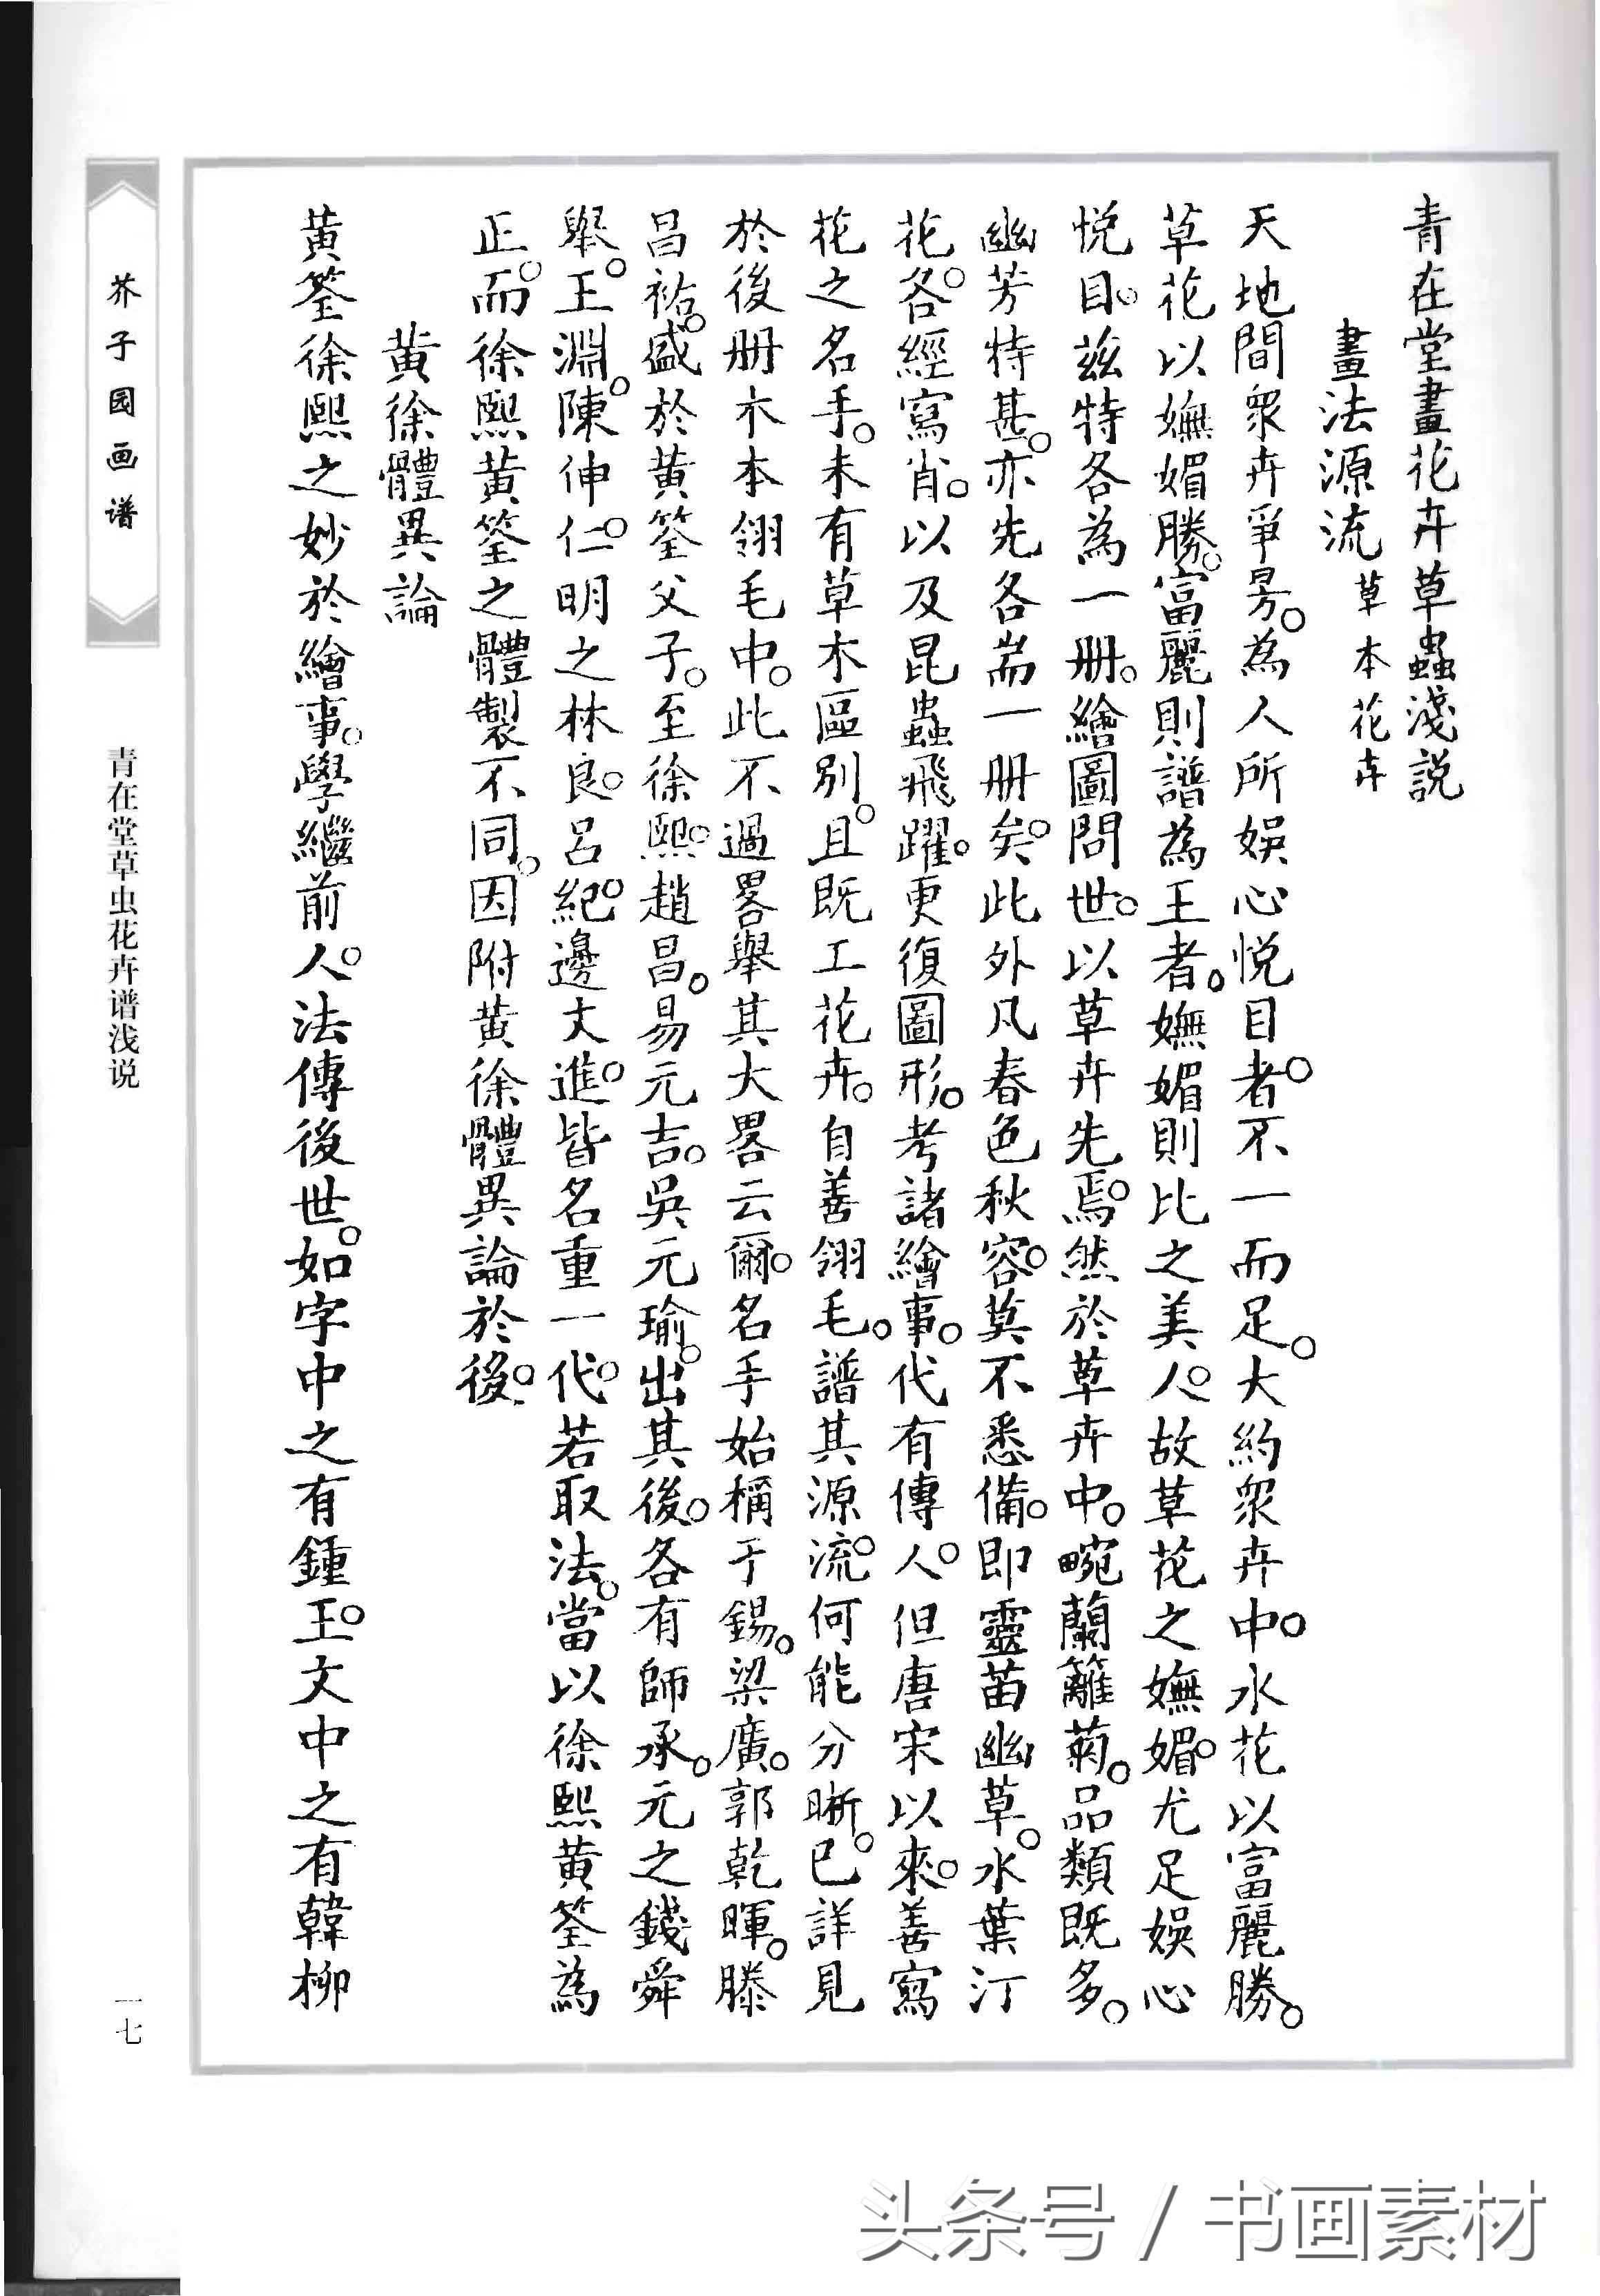 青在堂畫花卉草蟲淺說
畫法源流 草本花卉
天地間眾卉爭芳。為人所娛心悅目。者不一而足。大約眾卉中。水花以富麗勝。
草花以嫵媚勝。富麗則譜為王者。嫵媚則比之美人。故草花之嫵媚。尤足娛心
悅目。茲特各為一冊。繪圖問世。以草卉先焉。然於草卉中。畹蘭籬菊。品類既多。
幽芳特甚。亦先各耑一冊矣。此外凡春色秋容。莫不悉備。即靈苗幽草。水葉汀
花。各經寫肖。以及昆蟲飛躍。更復圖形。考諸繪事。代有傳人。但唐宋以來。善寫
花之名手。未有草木區別。且既工花卉。自善翎毛。譜其源流。何能分晰。已詳見
於後冊木本翎毛中。此不過畧舉其大畧云爾。名手始稱于錫。梁廣。郭乾暉。滕
昌祐。盛於黃筌父子。至徐熙。趙昌。易元吉。吳元瑜。出其後。各有師承。元之錢舜
舉。王淵。陳仲仁。明之林良。呂紀。邊文進。皆名重一代。若取法。當以徐熙黃筌為
正。而徐熙黃筌之體製不同。因附黃徐體異論於後。
黃徐體異論
黃筌徐熙之妙於繪事。學繼前人。法傳後世。如字中之有鍾王。文中之有韓柳
芥子园画谱
青在堂草虫花卉谱浅说
一七
头条号 / 书画素材